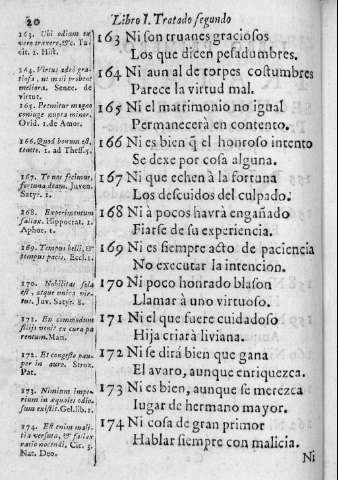 20 Libro I. Tratado segundo
163. Ubi odium eu
vero travere, &c. Ta
cit. 1. Hist.
164. Virtus adeo gra
tiosa, ut insit probent
meliora. Senec. de
virtut.
165. Permitur magno
coniuge nupta minor.
Ovid. 1. de Amor.
166. Quod bonum est,
tenete. 1. ad Thess. 5.
167. Te nos facimus,
fortuna deam. Juven.
Satyr. 1.
168. Experimentum
fallax. Hippocrat. 1.
Aphor. 1.
169. Tempus belli, &
tempus pacis. Eccl. 1.
170. Nobilitas sola
est, atque unica vir-
tus. Juv. Satyr. 8.
171. En commodum
filijs venit ex cura pa
rentum. Man.
172. Et congesto pau-
per in auro. Stroz.
Pat.
173. Nimium impe-
rium in æquales odio-
sum existit. Gel. lib. 1.
174. Est enim mali-
tia versuta, & fallax
ratio nocendi. Cic. 3.
Nat. Deo.
163 Ni son truanes graciosos
Los que dicen pesadumbres.
164 Ni aun al de torpes costumbres
Parece la virtud mal.
165 Ni el matrimonio no igual
Permanecerà en contento.
166 Ni es bien q̃ el honroso intento
Se dexe por cosa alguna.
167 Ni que echen à la fortuna
Los descuidos del culpado.
168 Ni à pocos havrà engañado
Fiarse de su experiencia.
169 Ni es siempre acto de paciencia
No executar la intencion.
170 Ni poco honrado blason
Llamar à uno virtuoso.
171 Ni el que fuere cuidadoso
Hija criarà liviana.
172 Ni se dirá bien que gana
El avaro, aunque enriquezca.
173 Ni es bien, aunque se merezca
Iugar de hermano mayor.
174 Ni cosa de gran primor
Hablar siempre con malicia.
Ni